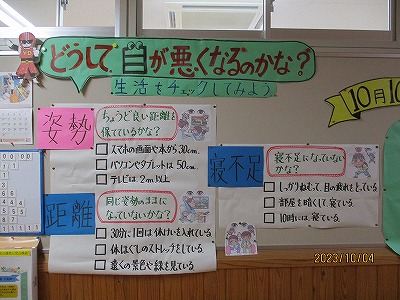 どうして、目が悪くなるのかな?
生活をチェックしてみよう
10月10
姿勢
ちょうど良い距離を
保てているかな?
スマホの画面や本から30cm.
パソコンやタブレットは 50cm.
テレビは 2m以上
距離
同じ姿勢のままに
なっていないかな?
30分に1回は休けいを入れている.
休けい後くのストレッチをしている.
遠くの景色や緑を見ている
寝不足
寝不足になっていない
かな?
しっかりねむって、目の疲れをとっている
部屋を暗くして寝ている
10時には、寝ている.
2023/10/04